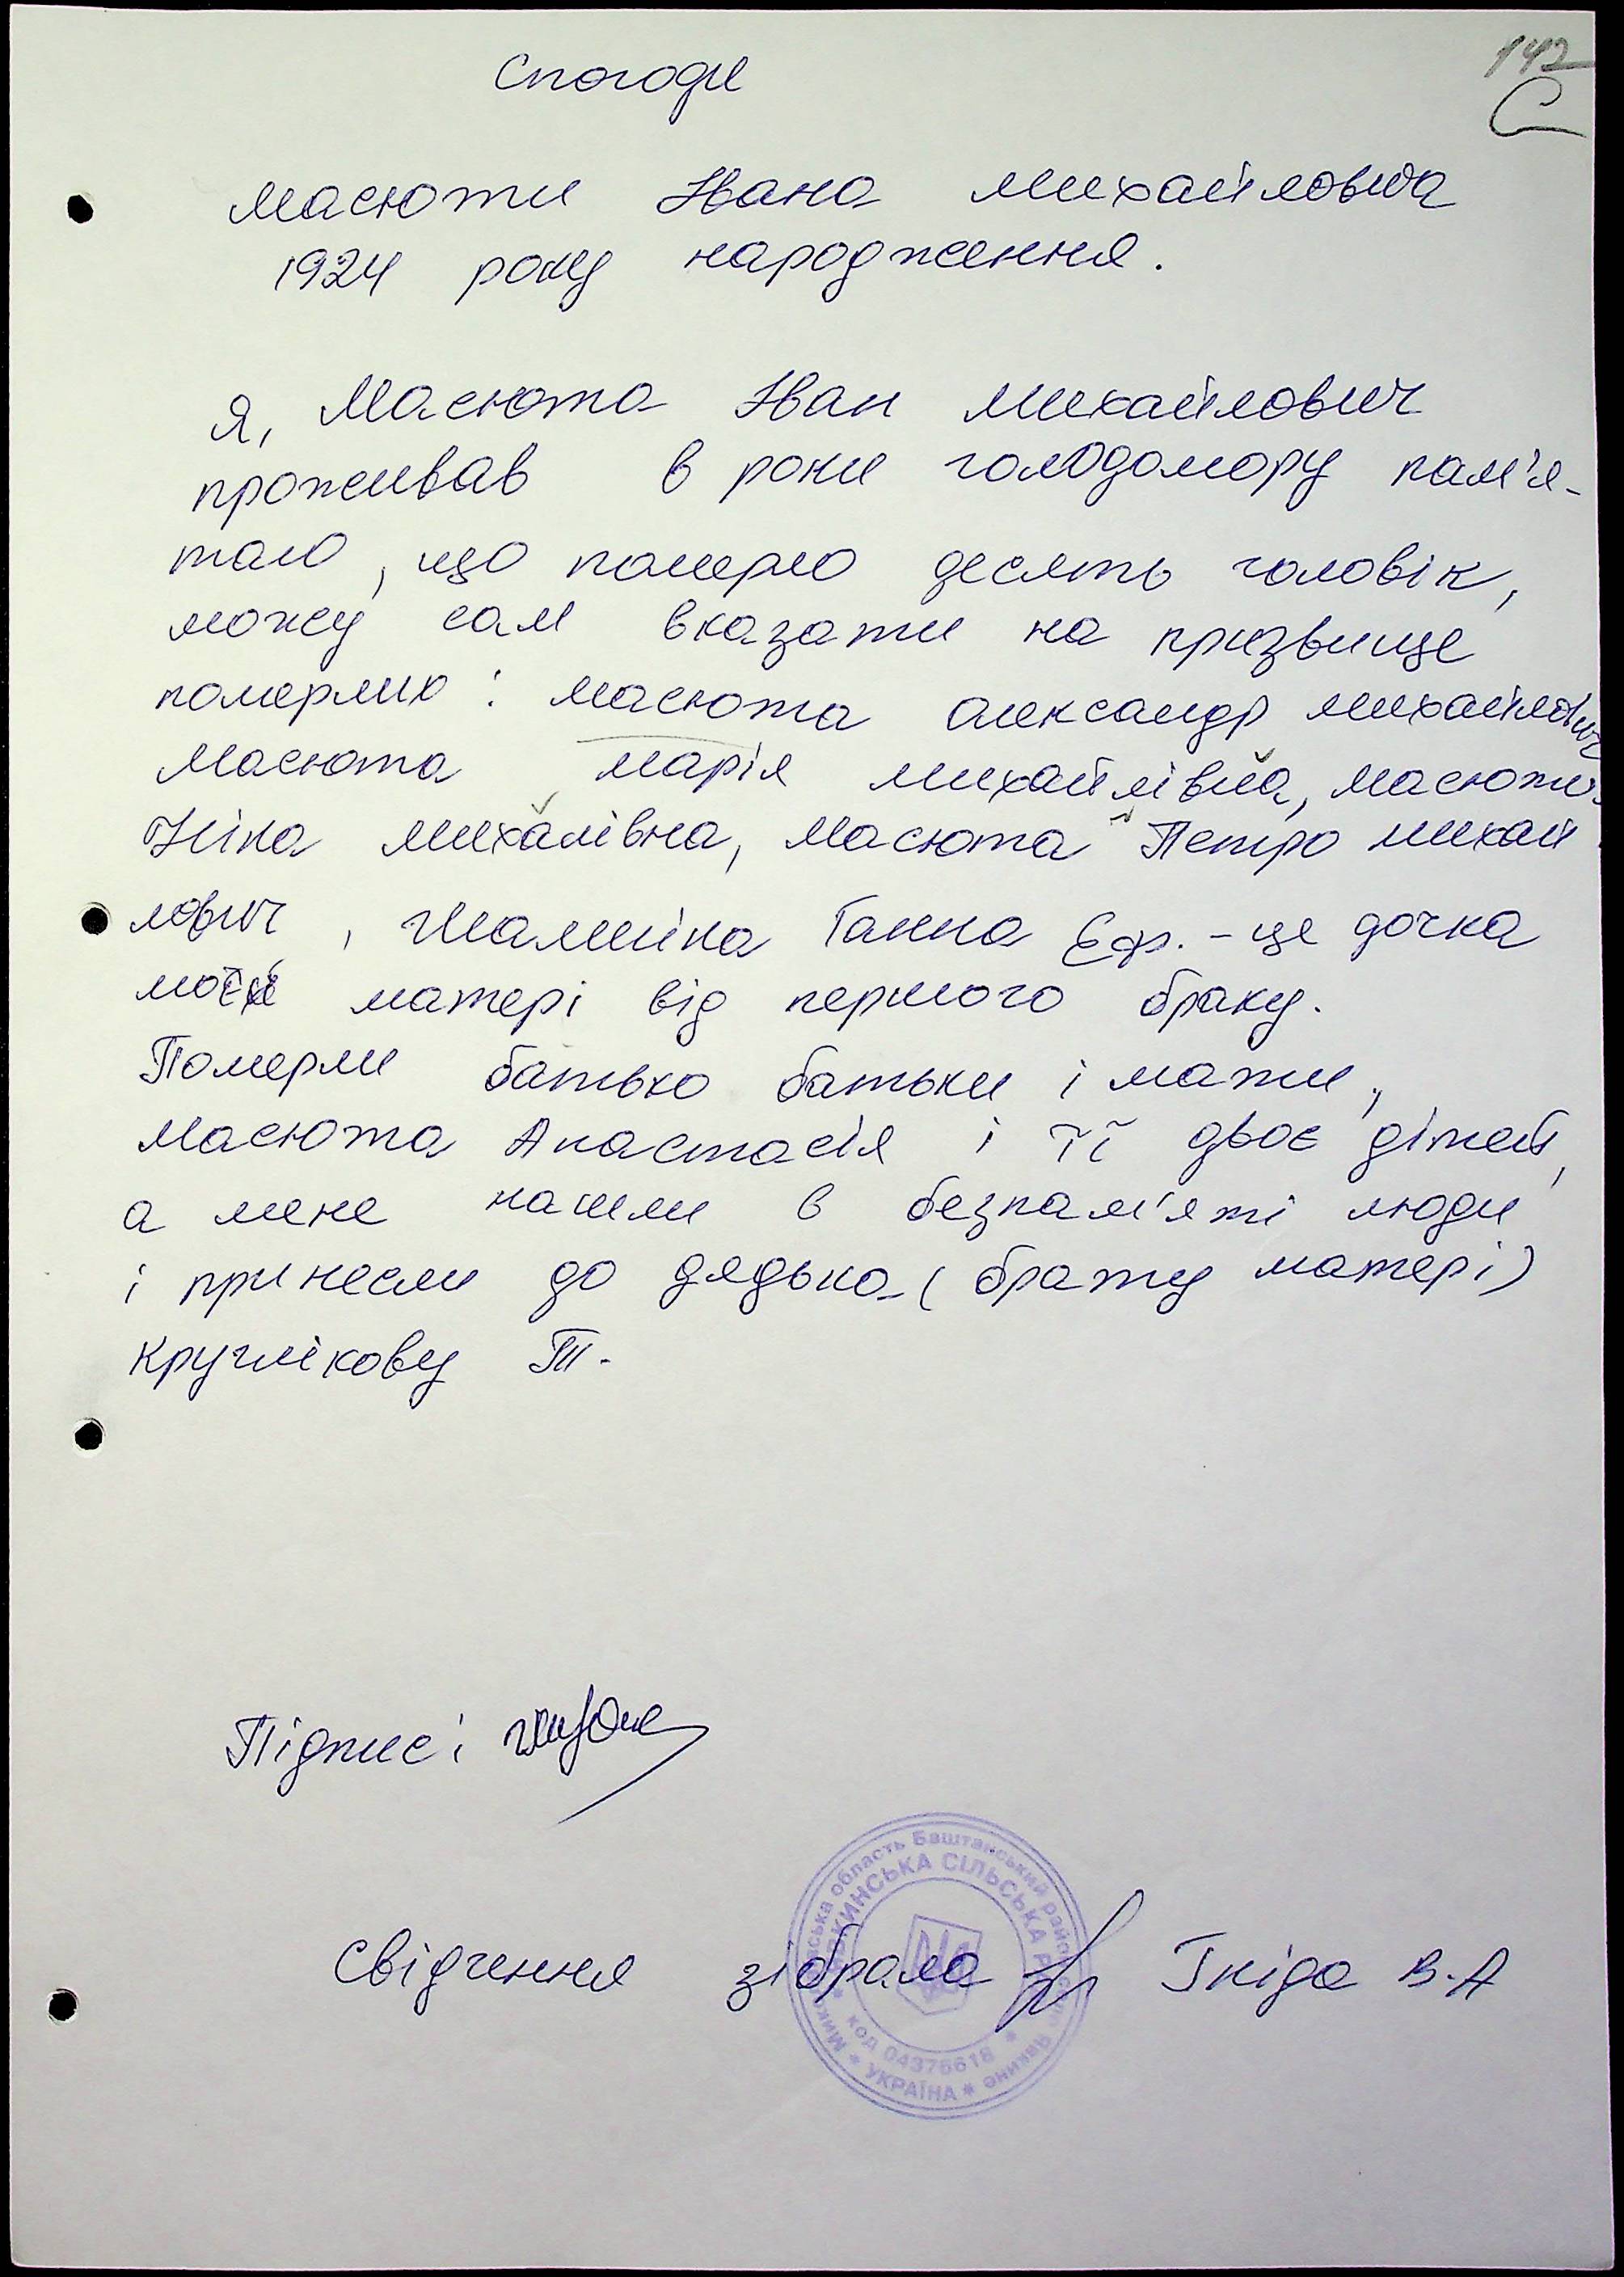 142
С
Спогоди
Масюти Івана Михайловича
1924 року народження.
Я, Масюта Іван Михайлович
проживав в роки голодомору пам'я-
таю, що померло десять чоловік,
можу сам вказати на призвище
померлих: Масюта Олександр Михайлович
Масюта Марія Михайлівна, Масюта
Ніна Михалівна, Масюта Петро Михай
лович, Ганна Еф. - це дочка
моєй матері від першого браку.
Померли батько батьки і мати,
Масюта Анастасія і її двоє дітей,
а мене нашли в безпам'яті люди
і принесли до дядька (брату матері)
Круглікову Т.
Підпис:
Свідчення зібрала Гніда В.А
область Баштанський район
СІЛЬСЬКА РАДА
код 04375618
* УКРАЇНА *